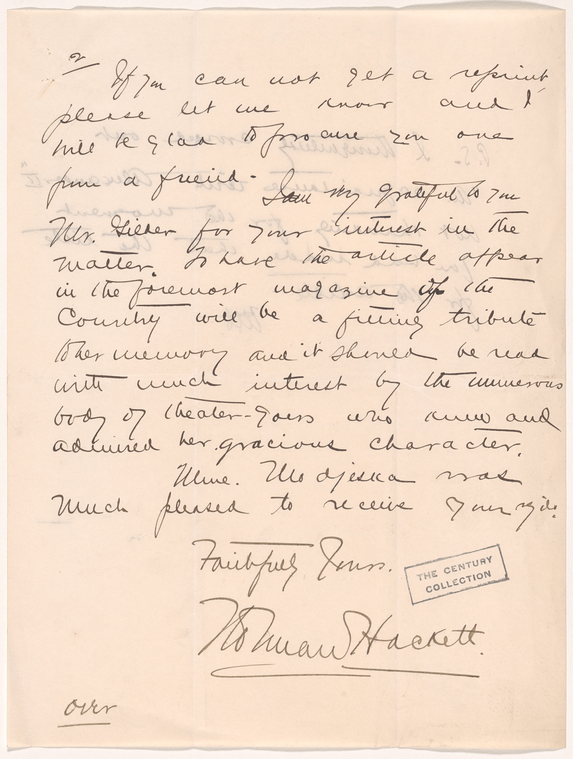 2
If you can not get a reprint,
please let me know and I
will be glad to procure you one
from a friend - I am very grateful to you
Mr. Gilder for your interest in the
matter. To have the article appear
in the foremost magazine of the
Country will be a fitting tribute
to her memory and it should be read
with much interest by the numerous
body of theater-goers who knew and
admired her gracious character.
Mme. Modjeska was
much pleased to receive your
Faithfully Yours.
THE CENTURY
COLLECTION
Norman Hackett.
over